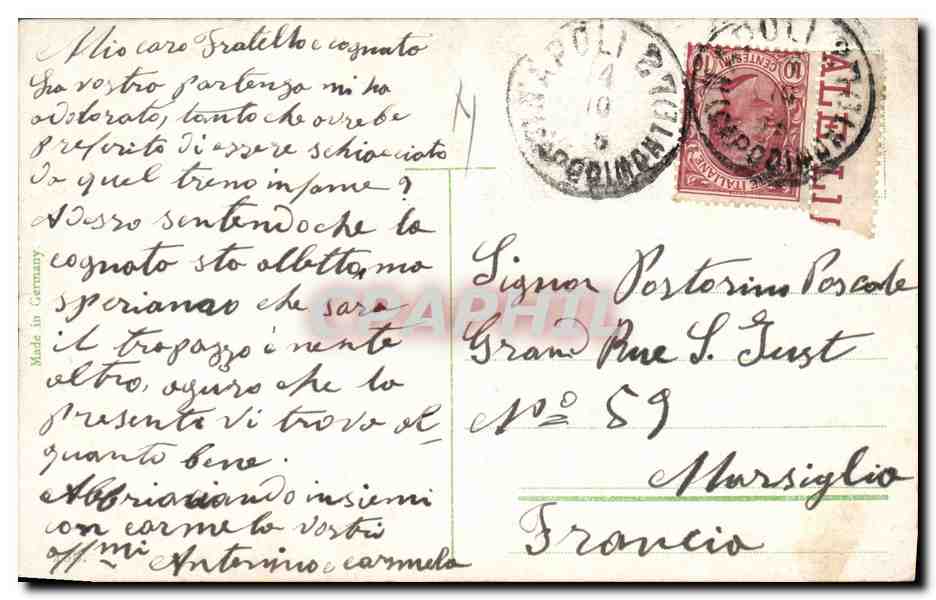 Mio caro Fratello e cognato
La vostro partenza mi ha
adolorato, tanto che avrebe
preferito di essere schiacciato
da quel treno infame ?
Adesso sentendo che la
cognato sta alletta, ma
sperianao che sara
il trapazzo i nente
altro, aguro che la
presente vi trova al-
quanto bene.
Abbriaciando insiemi
con carmela vostri
aff.mi Antonino e carmela
Made in Germany
NAPOLI
CAPODIMONTE
10 CENTESIMI 10
POSTE ITALIANE
NAPOLI
CAPODIMONTE
CPAPHIL
Signor Postorino Pascale
Grand Rue S. Just
No 59
Marsiglia
Francia